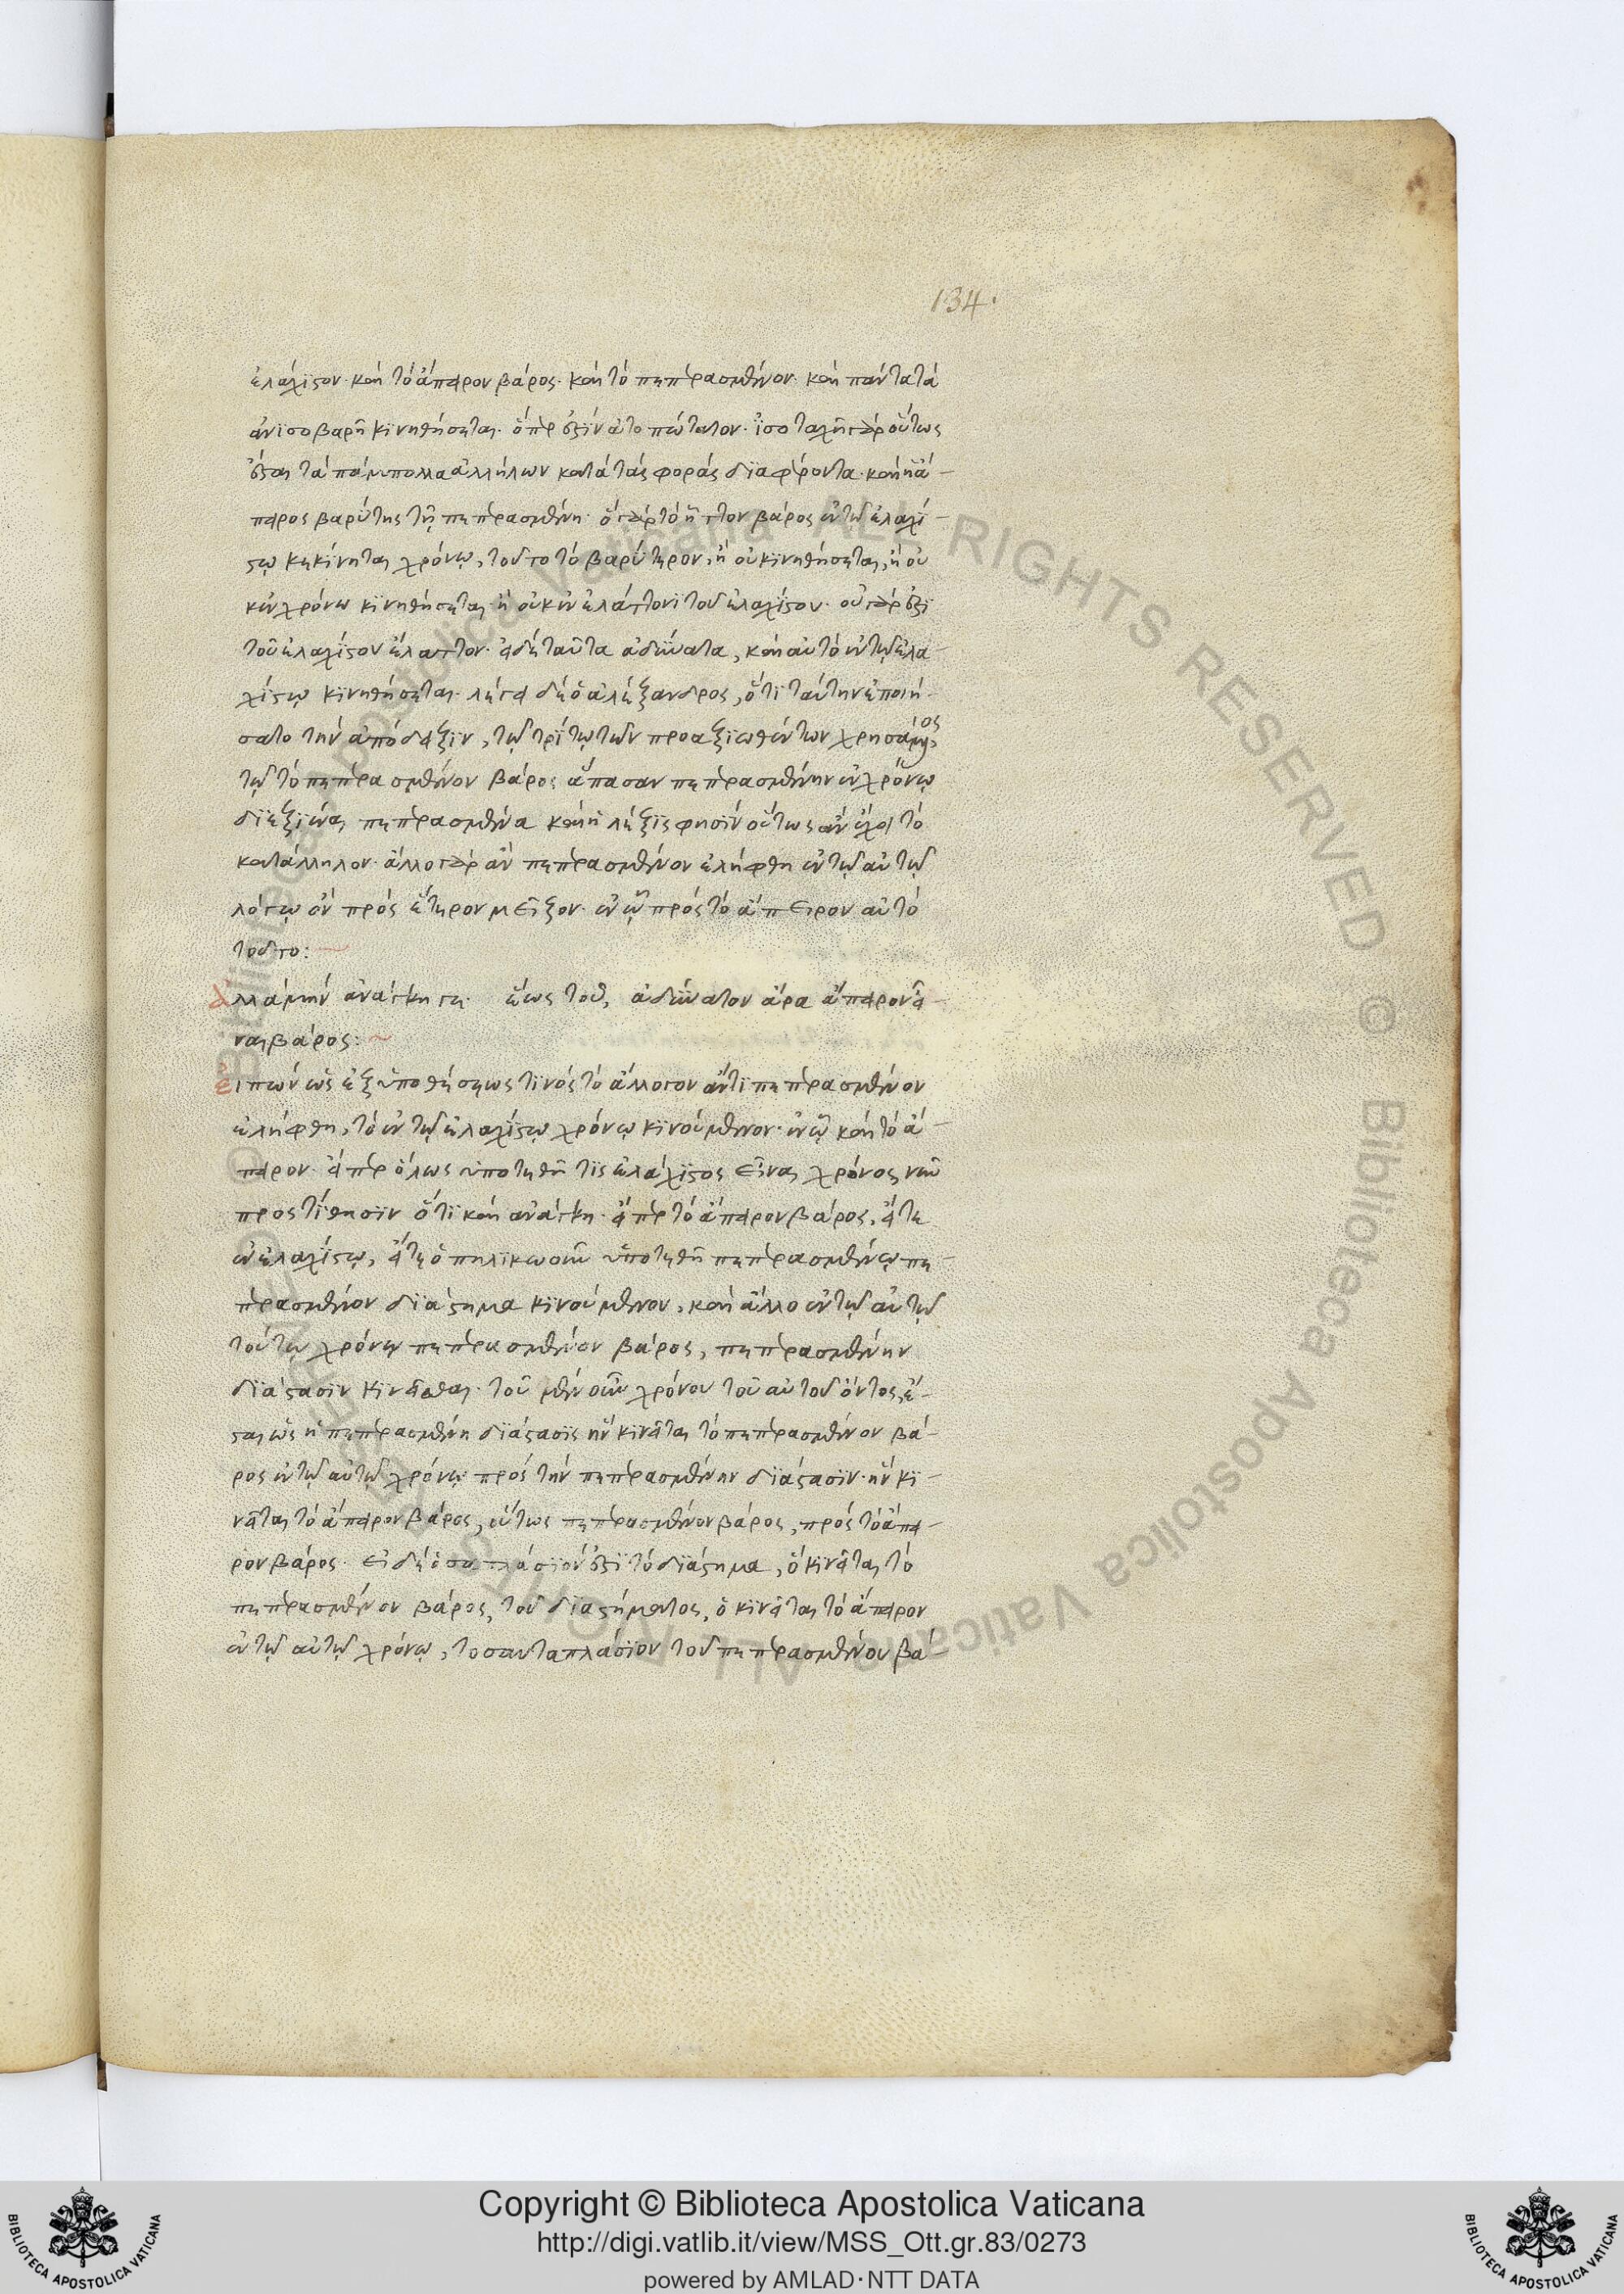 134.
ἐλάχιστον· καὶ τὸ ἄπειρον βάρος· καὶ τὸ πεπερασμένον· καὶ πάντα τὰ
ἀνισοβαρῆ κινηθήσεται· ὅπερ ἐστὶν ἀτοπώτατον· ἰσοταχῆ γὰρ οὕτως
ἔσται τὰ πάμπολλα ἀλλήλων κατὰ τὰς φορὰς διαφέροντα· καὶ ἡ ἄ-
πειρος βαρύτης τῇ πεπερασμένῃ· ὃ γὰρ τὸ ἧττον βάρος ἐν τῷ ἐλαχί-
στῳ κεκίνηται χρόνῳ, τοῦτο τὸ βαρύτερον, ἢ οὐ κινηθήσεται, ἢ οὐ
κ ἐν χρόνω κινηθήσεται ἢ οὐκ ἐν ἐλάττονι τοῦ ἐλαχίστου· οὐ γάρ ἐστι
τοῦ ἐλαχίστου ἔλαττον· εἰ δὲ ταῦτα ἀδύνατα, καὶ αὐτὸ ἐν τῷ ἐλα-
χίστῳ κινηθήσεται· λέγει δὲ ὁ ἀλέξανδρος, ὅτι ταύτην ἐποιή-
σατο τὴν ἀπόδειξιν, τῷ τρίτῳ τῶν προαξιωθέντων χρησάμενος
τῷ τὸ πεπερασμένον βάρος ἅπασαν πεπερασμένην ἐν χρόνῳ
διεξιέναι πεπερασμένα καὶ ἡ λέξις φησὶν οὕτως ἂν ἔχοι τὸ
κατάλληλον· ἄλλο γὰρ ἂν πεπερασμένον ἐλήφθη ἐν τῷ αὐτῷ
λόγῳ ὂν πρὸς ἕτερον μεῖζον· ἐν ᾧ πρὸς τὸ ἄπειρον αὐτὸ
τοῦτο:
ἀλλὰ μὴν ἀνάγκη γε ἕως τοῦ, ἀδύνατον ἄρα ἄπειρον εἶ-
ναι βάρος:
εἰπὼν ὡς ἐξ ὑποθέσεως τινὸς τὸ ἄλλο γὰρ ἄν τι πεπερασμένον
ἐλήφθη, τὸ ἐν τῷ ἐλαχίστῳ χρόνῳ κινούμενον· ἐν ᾧ καὶ τὸ ἄ-
πειρον· εἴπερ ὅλως ὑποτεθῆ τις ἐλάχιστος εἶναι χρόνος, νῦν
προστίθησιν ὅτι καὶ ἀνάγκη· εἴπερ τὸ ἄπειρον βάρος, εἴτε
ἐν ἐλαχίστῳ, εἴτε ὁπηλικωοῦν ὑποτεθῆ πεπερασμένῳ πε-
περασμένον διάστημα κινούμενον, καὶ ἄλλο ἐν τῷ αὐτῷ
τούτῳ χρόνῳ πεπερασμένον βάρος, πεπερασμένην
διάστασιν κινεῖσθαι· τοῦ μὲν οὖν χρόνου τοῦ αὐτοῦ ὄντος, ἔ-
σται ὡς ἡ πεπερασμένη διάστασις ἣν κινεῖται τὸ πεπερασμένον βά-
ρος ἐν τῷ αὐτῷ χρόνῳ πρὸς τὴν πεπερασμένην διάστασιν· ἣν κι-
νεῖται τὸ ἄπειρον βάρος, οὕτως πεπερασμένον βάρος, πρὸς τὸ ἄπει-
ρον βάρος· εἰ δὲ ὁσαπλάσιόν ἐστι τὸ διάστημα, ὃ κινεῖται τὸ
πεπερασμένον βάρος, τοῦ διαστήματος, ὃ κινεῖται τὸ ἄπειρον
ἐν τῷ αὐτῷ χρόνῳ, τοσαυταπλάσιον τοῦ πεπερασμένου βά-
Copyright © Biblioteca Apostolica Vaticana
http://digi.vatlib.it/view/MSS_Ott.gr.83/0273
powered by AMLAD·NTT DATA